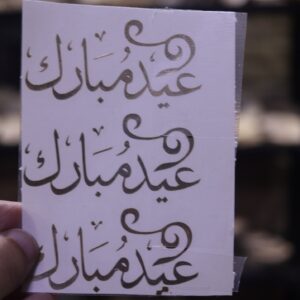 عيد مبارك
عيد مبارك
عيد مبارك